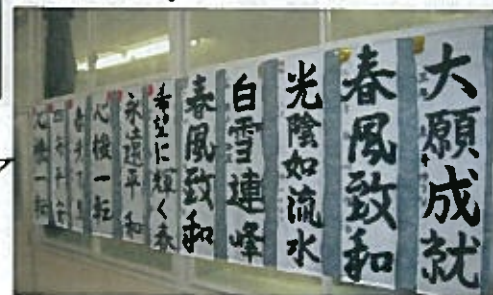 大願成就
春風致和
光陰如流水
白雪連峰
春風致和
希望に輝く春
永遠平和
心機一転
心機一転